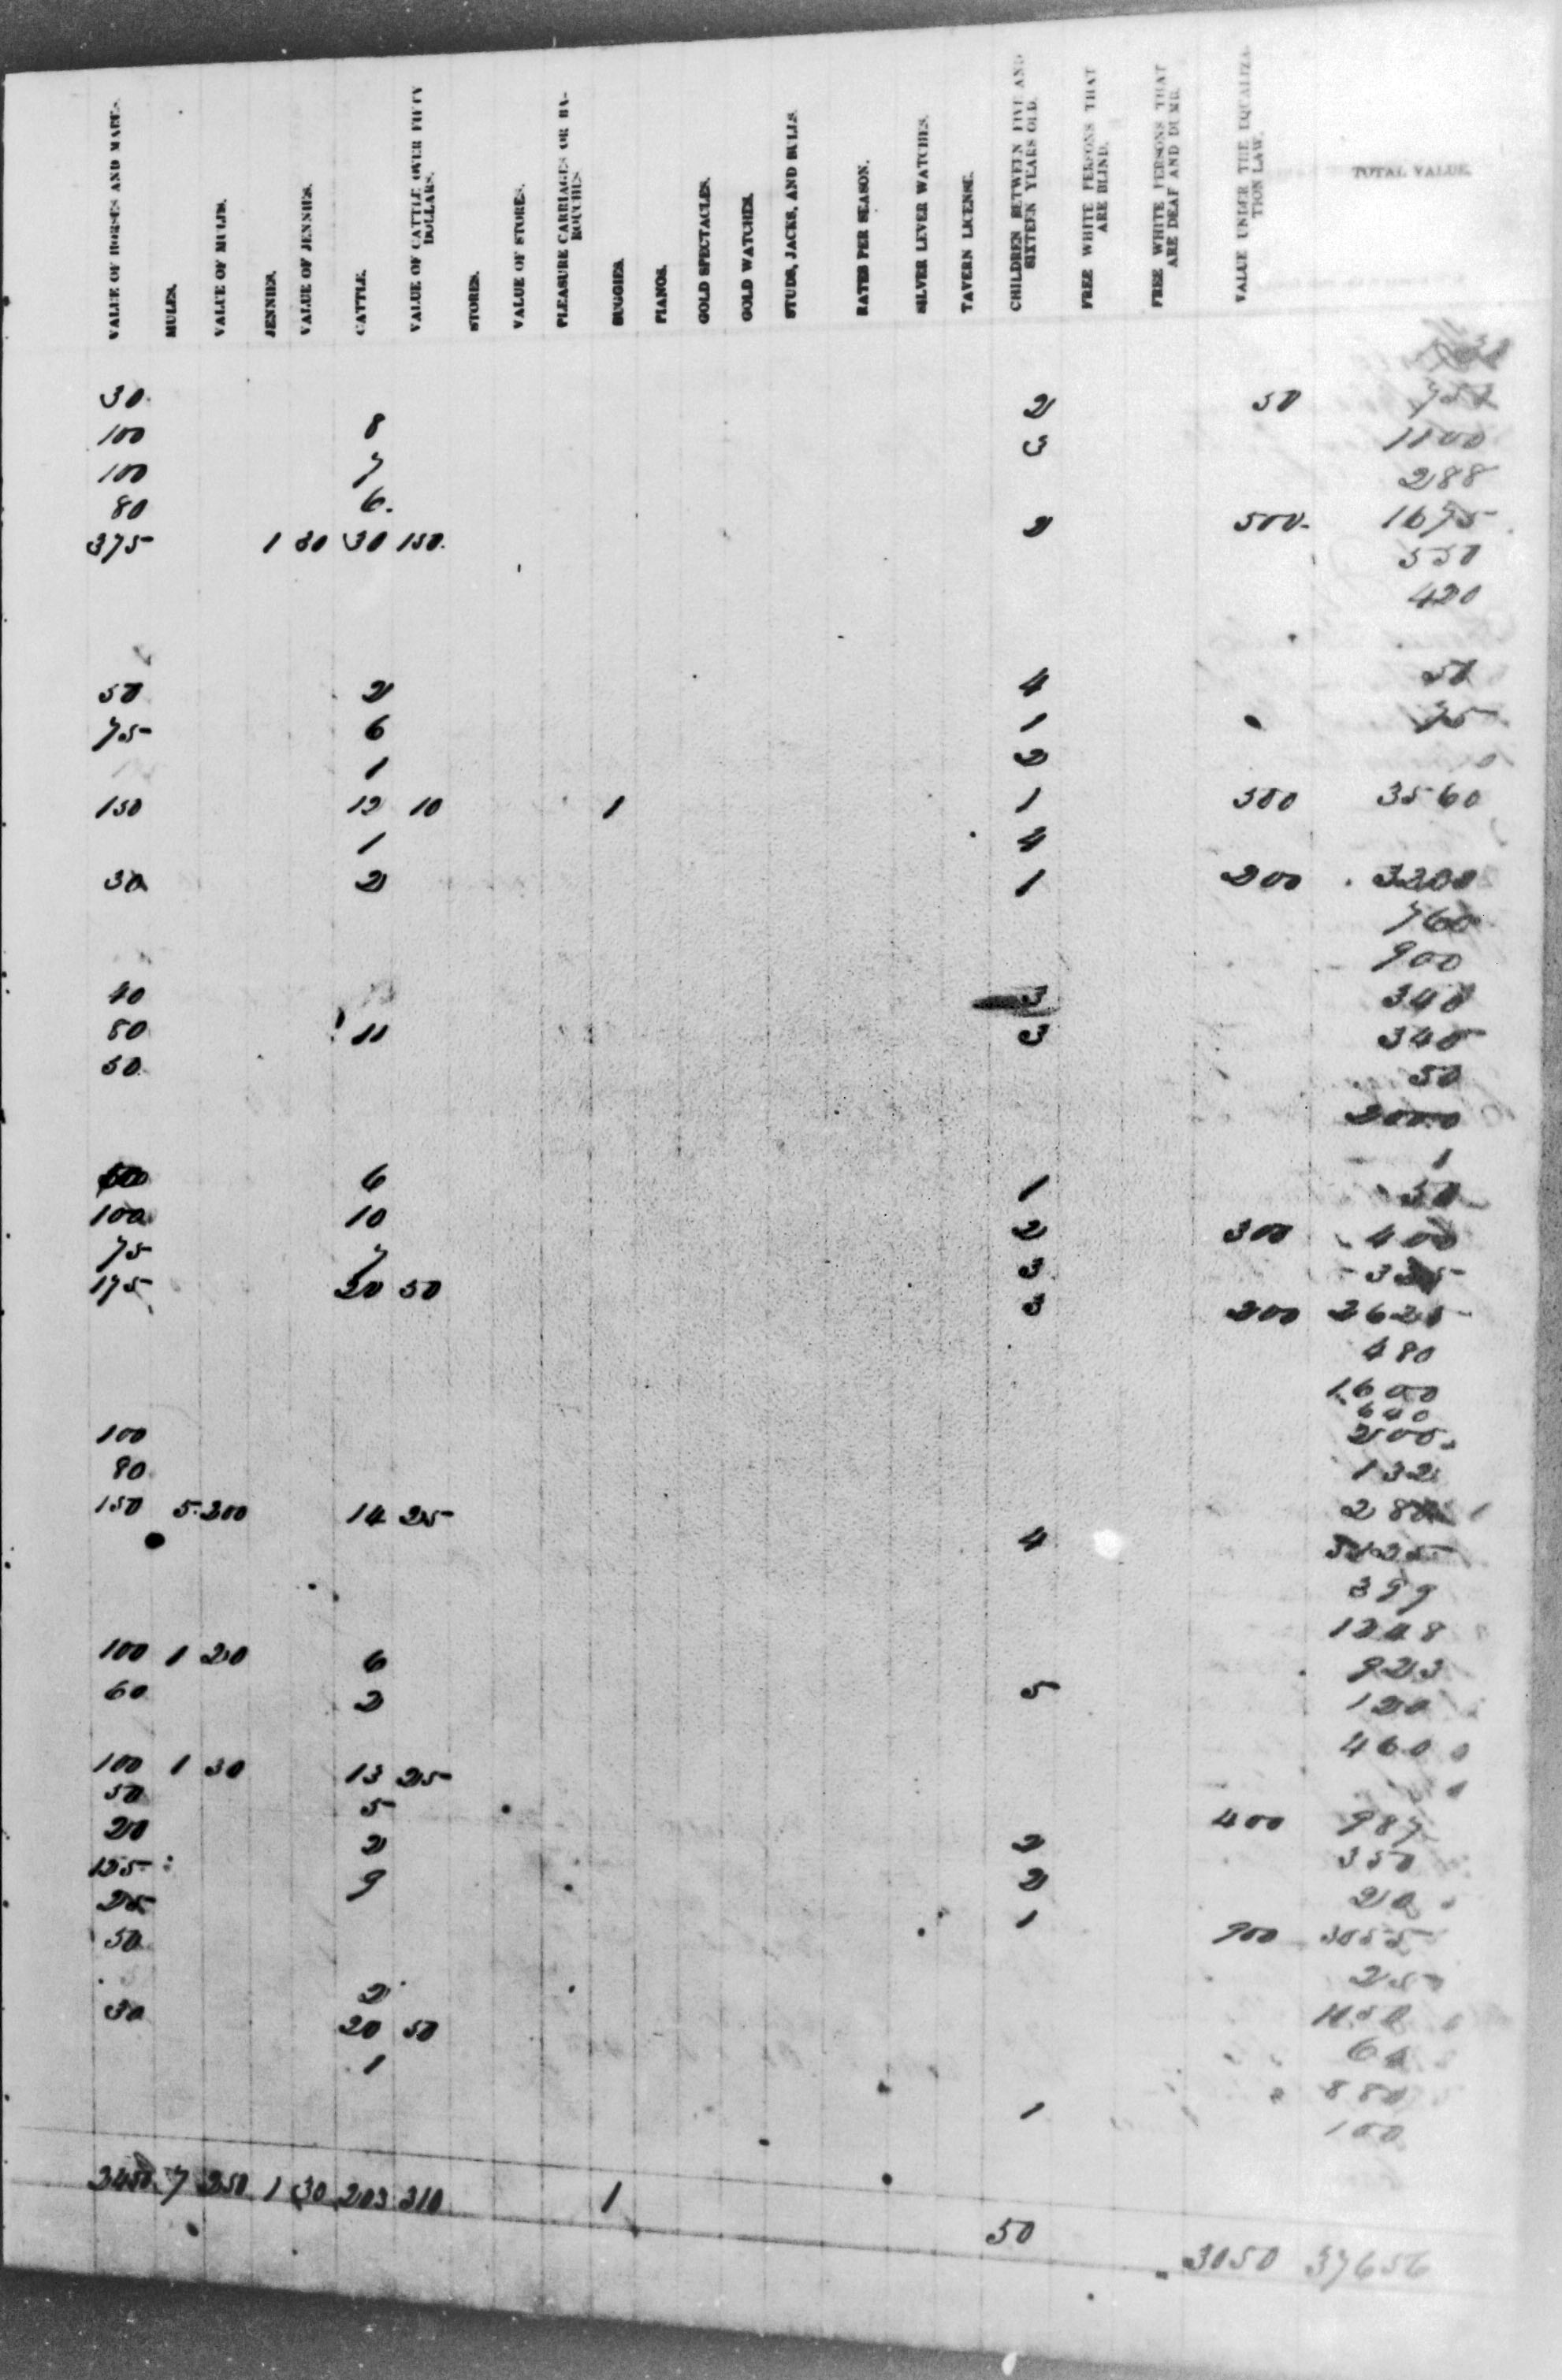 VALUE OF HORSES AND MARES.
MULES.
VALUE OF MULES.
JENNIES.
VALUE OF JENNIES.
CATTLE.
VALUE OF CATTLE OVER FIFTY DOLLARS.
STORES.
VALUE OF STORES.
PLEASURE CARRIAGES OR BAROUCHES
BUGGIES.
PIANOS.
GOLD SPECTACLES.
GOLD WATCHES.
STUDS, JACKS, AND BULLS.
RATES PER SEASON.
SILVER LEVER WATCHES.
TAVERN LICENSE.
CHILDREN BETWEEN FIVE AND SIXTEEN YEARS OLD.
FREE WHITE PERSONS THAT ARE BLIND.
FREE WHITE PERSONS THAT ARE DEAF AND DUMB.
VALUE UNDER THE EQUALIZATION LAW.
TOTAL VALUE.
30 2 50
100 8 3 1100
100 7 288
80 6. 2 500. 1675
375 1 30 30 150. 550
420
50 2 4 50
75 6 1 75
1 2
150 12 10 1 1 300 3560
1 4
30 2 1 200 3200
760
900
40 3 340
80 11 3 340
50 50
2000
1
6 1 50
100 10 2 300 400
75 7 3
175 20 50 3 200 2625
480
1600
640
100 200
80 132
150 5 200 14 25 280
4
399
1248
100 1 20 6 923
60 2 5 120
460
100 1 30 13 25
50 5 400 987
20 2 2 350
125 9 2 20
25 1 900 3055
50 25
2
30 20 50
1 880
1 100
3450 7 250 1 30 203 310 1
50 3050 37656